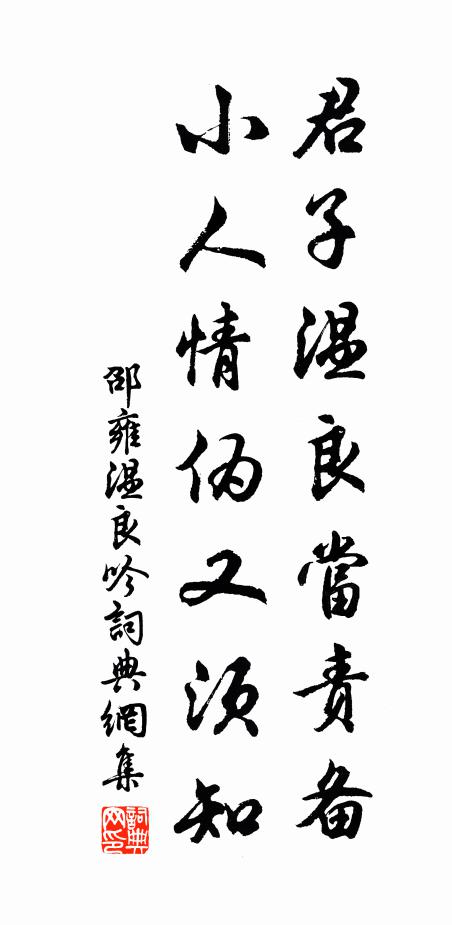 君子温良當责备
小人情伪又须知
邵雍温良吟詞典網集
詞典网印